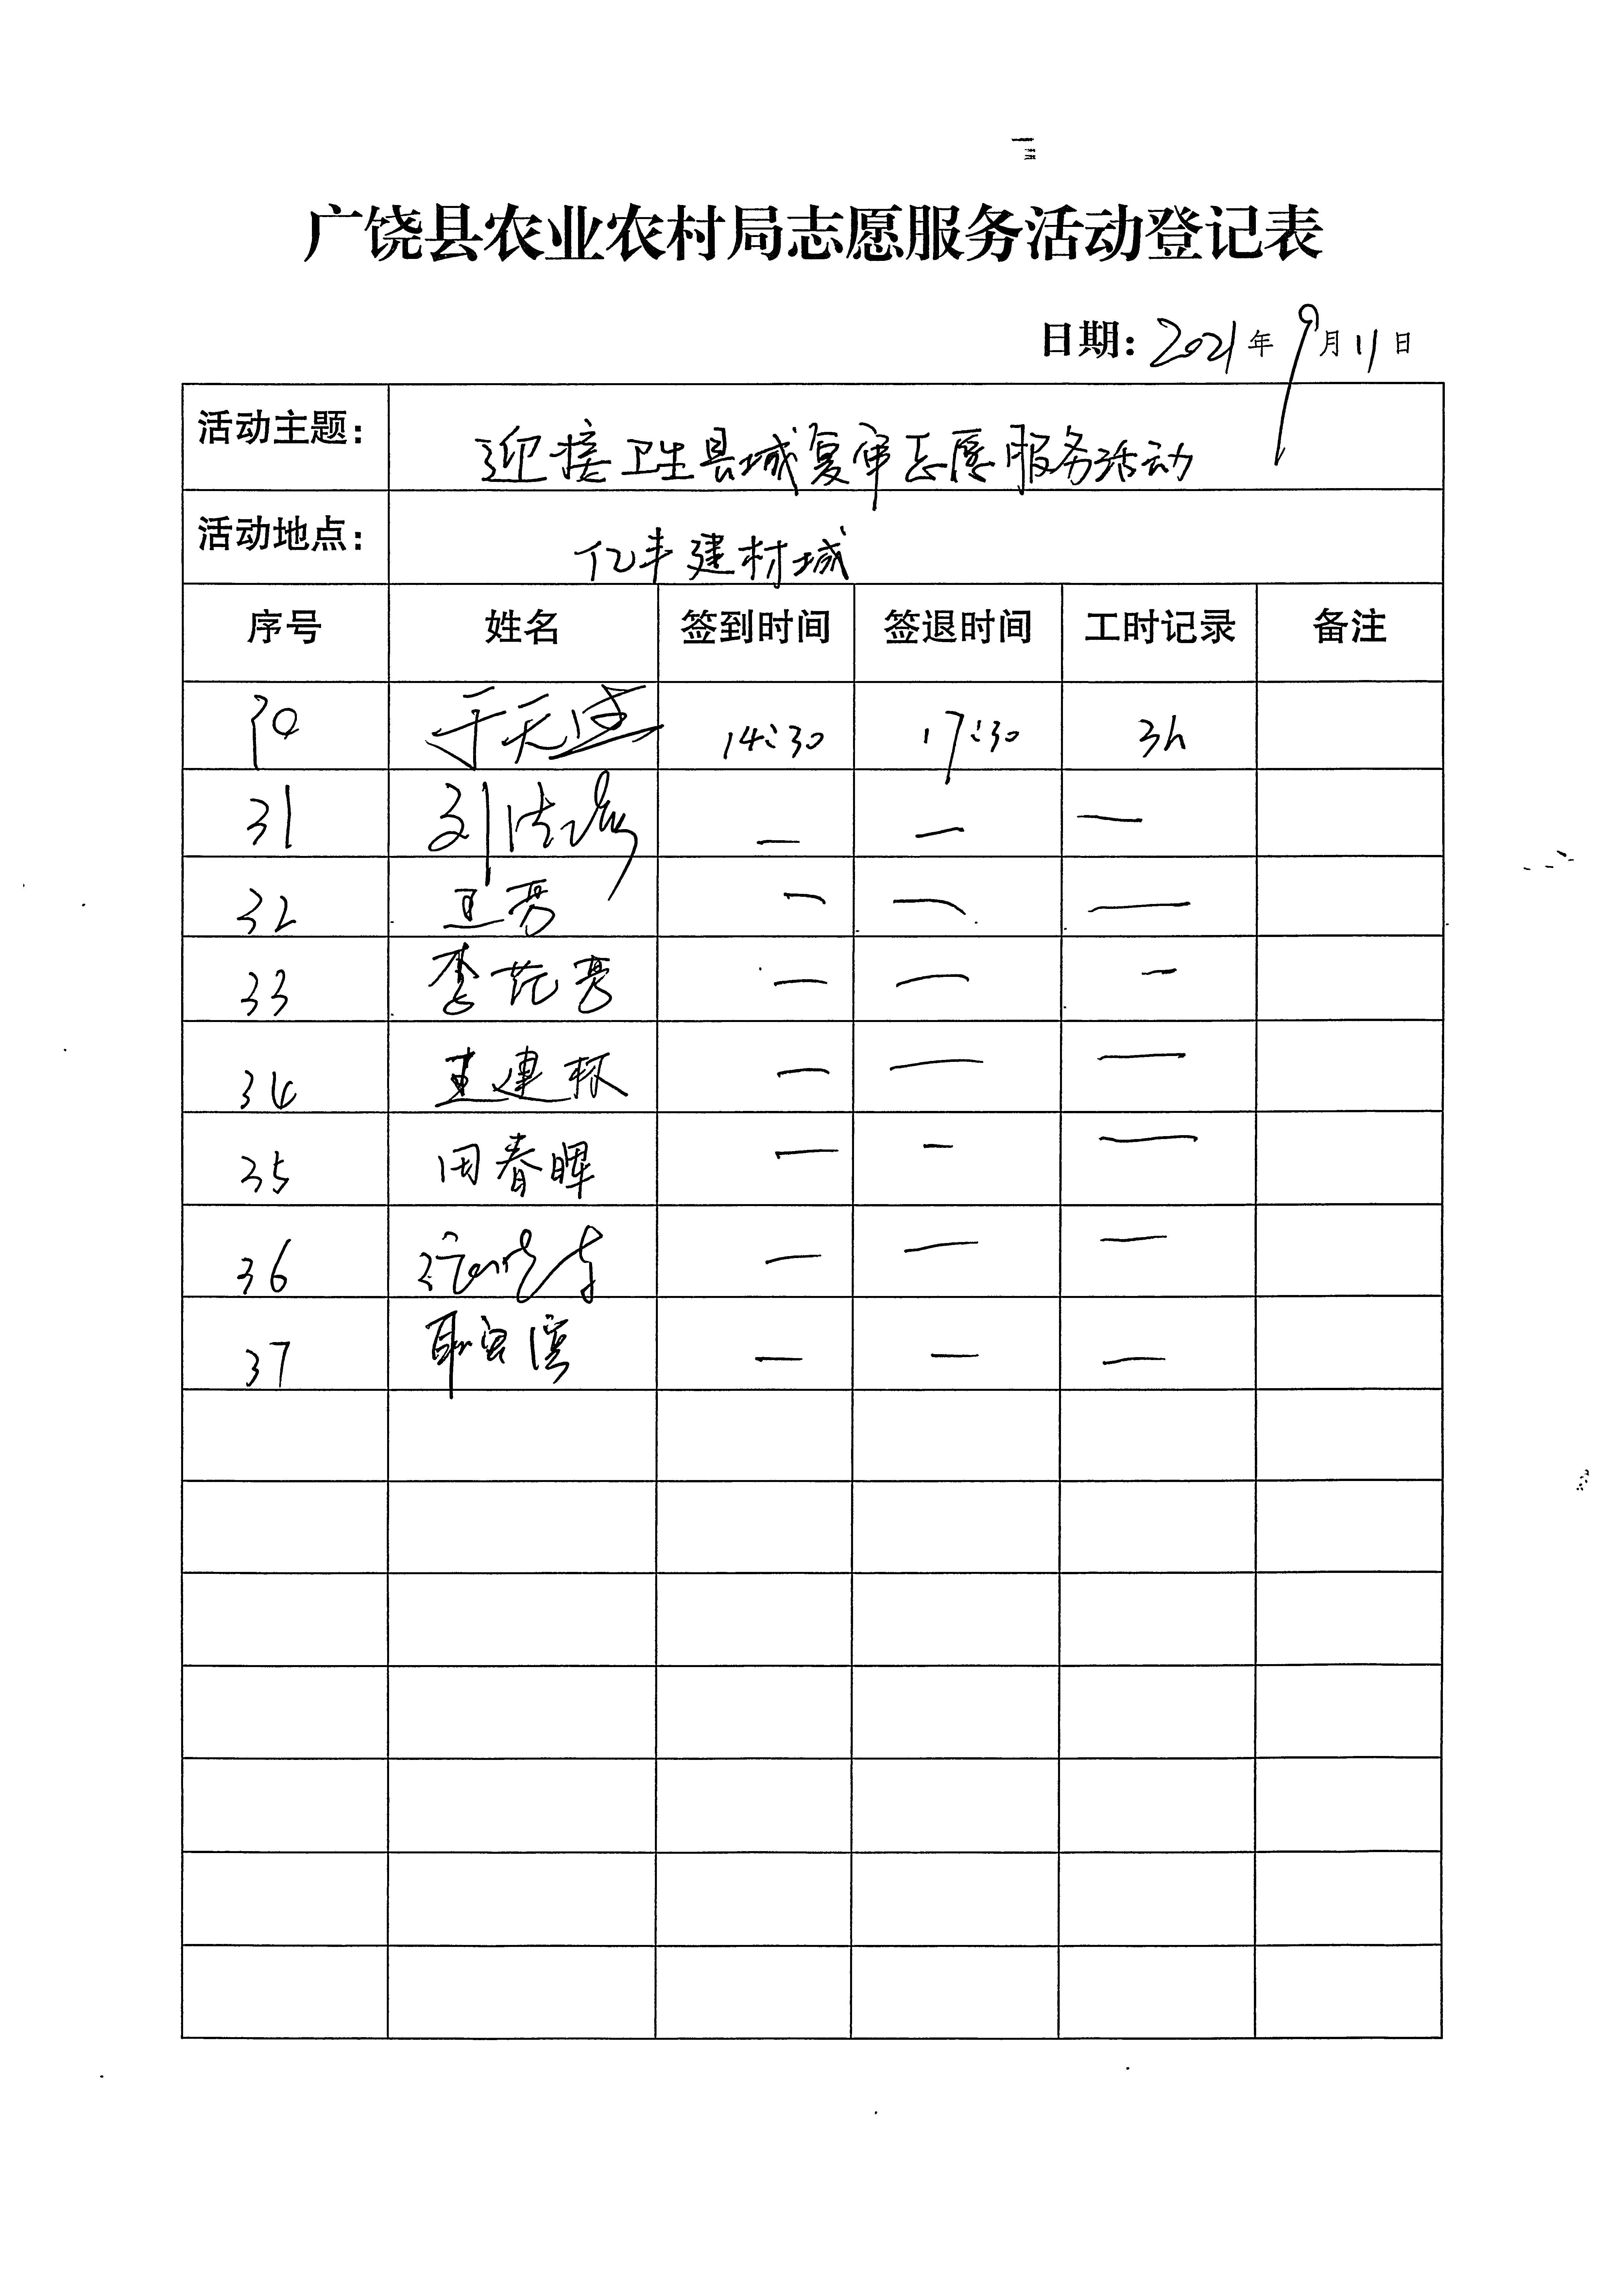 广饶县农业农村局志愿服务活动登记表
日期：2021年9月11日
活动主题： 迎接卫生县城复审志愿服务活动
活动地点： 亿丰建材城
序号 姓名 签到时间 签退时间 工时记录 备注
30 于天 14:30 17:30 3h
31 刘 — — —
32 王亮 — — —
33 李花亮 — — —
34 王建林 — — —
35 田春晖 — — —
36 — — —
37 — — —